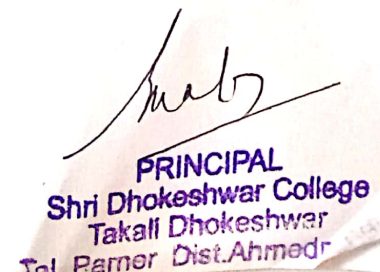 PRINCIPAL
Shri Dhokeshwar College
Takali Dhokeshwar
Tal. Parner Dist.Ahmedn